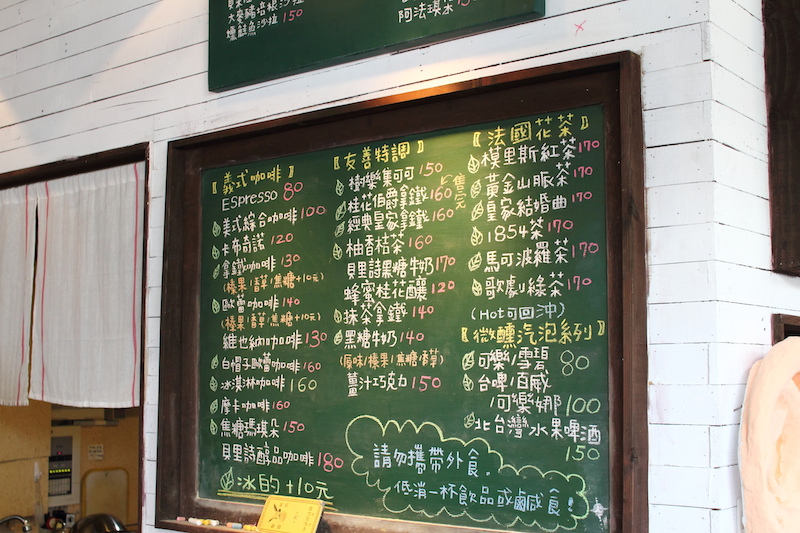 大麥豬培根沙拉
燻鮭魚沙拉 150
阿法琪朵 150
〖義式咖啡〗
Espresso 80
美式綜合咖啡 100
卡布奇諾 120
拿鐵咖啡 130
(榛果/香草/焦糖+10元)
歐蕾咖啡 140
(榛果/香草/焦糖+10元)
維也納咖啡 130
白帽子歐蕾咖啡 160
冰淇淋咖啡 160
摩卡咖啡 160
焦糖瑪琪朵 150
貝里詩醇品咖啡 180
冰的+10元
〖友善特調〗
樹樂集可可 150
桂花伯爵拿鐵 160
經典皇家拿鐵 160
柚香桔茶 160
貝里詩果糖牛奶 170
蜂蜜桂花釀 120
抹茶拿鐵 140
黑糖牛奶 140
(原味/榛果/焦糖/香草)
薑汁巧克力 150
〖法國花茶〗
模里斯紅茶 170
黃金山脈茶 170
皇家結婚曲 170
1854茶 170
馬可波羅茶 170
歌劇綠茶 170
(Hot可回沖)
〖微醺汽泡系列〗
可樂/雪碧 80
台啤/百威
/可樂娜 100
北台灣水果啤酒
150
請勿攜帶外食.
低消一杯飲品或鹹食!